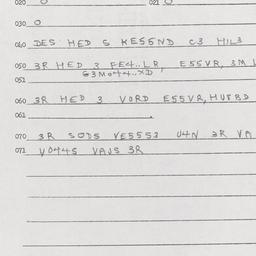 020 O 021 O
030 O
040 DES HED S KESSND C3 HIL3
050 3R HED 3 FE4..LR, ESSVR, 3M
G3M044..XD
051
060 3R HED 3 VORD ESSVR, HUFBD
061 .
070 3R SODS VESSS3 U4N 3R VM
071 VO44S VAJS 3R